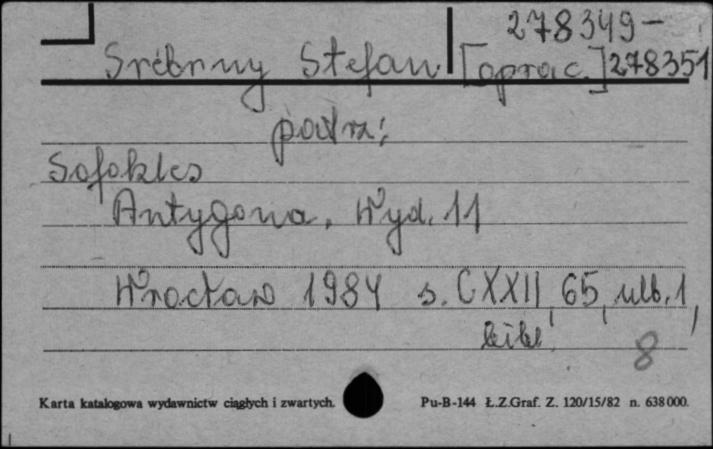 278349-
Srebrny Stefan [oprac.] 278351
patrz:
Sofokles
Antygona. Wyd. 11
Wrocław 1984 s. CXXII, 65, nlb. 1,
bibl.
8
Karta katalogowa wydawnictw ciągłych i zwartych. Pu-B-144 Ł.Z.Graf. Z. 120/15/82 n. 638000.